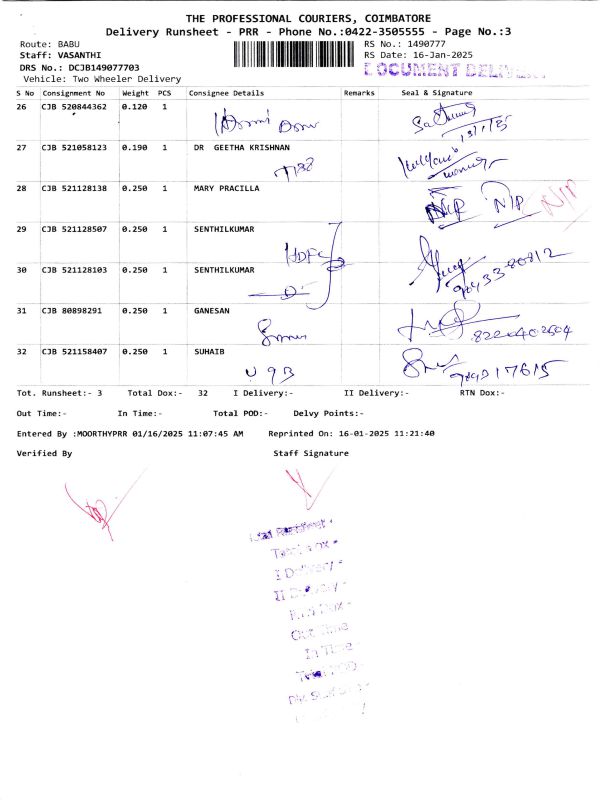 THE PROFESSIONAL COURIERS, COIMBATORE
Delivery Runsheet - PRR - Phone No.:0422-3505555 - Page No.:3
Route: BABU
RS No.: 1490777
Staff: VASANTHI
RS Date: 16-Jan-2025
DRS No.: DCJB149077703
DOCUMENT
Vehicle: Two Wheeler Delivery
S No Consignment No Weight PCS Consignee Details Remarks Seal & Signature
26 CJB 520844362 0.120 1
27 CJB 521058123 0.190 1 DR GEETHA KRISHNAN
28 CJB 521128138 0.250 1 MARY PRACILLA
N/P N/P N/P
29 CJB 521128507 0.250 1 SENTHILKUMAR
HDFC
30 CJB 521128103 0.250 1 SENTHILKUMAR
31 CJB 80898291 0.250 1 GANESAN
32 CJB 521158407 0.250 1 SUHAIB
Tot. Runsheet:- 3 Total Dox:- 32 I Delivery:- II Delivery:- RTN Dox:-
Out Time:- In Time:- Total POD:- Delvy Points:-
Entered By :MOORTHYPRR 01/16/2025 11:07:45 AM Reprinted On: 16-01-2025 11:21:40
Verified By Staff Signature
I Delivery -
II Delivery -
Out Time
In Time